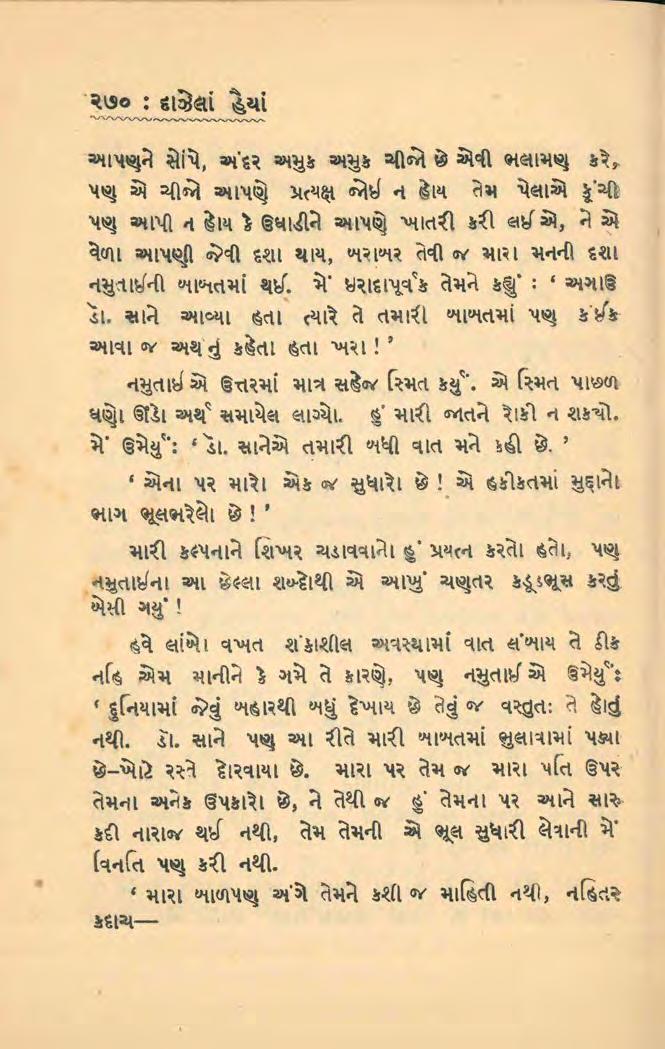 ૨૭૦ : દાઝેલાં હૈયાં
આપણને સોંપે, અંદર અમુક અમુક ચીજો છે એવી ભલામણ કરે,
પણ એ ચીજો આપણે પ્રત્યક્ષ જોઈ ન હોય તેમ પેલાએ કૂંચી
પણ આપી ન હોય કે ઉઘાડીને આપણે ખાતરી કરી લઈએ, ને એ
વેળા આપણી જેવી દશા થાય, બરાબર તેવી જ મારા મનની દશા
નમુતાઈની બાબતમાં થઈ. મેં ઇરાદાપૂર્વક તેમને કહ્યું : ‘ અગાઉ
ડૉ. સાને આવ્યા હતા ત્યારે તે તમારી બાબતમાં પણ કંઈક
આવા જ અર્થનું કહેતા હતા ખરા ! ’
નમુતાઈએ ઉત્તરમાં માત્ર સહેજ સ્મિત કર્યું. એ સ્મિત પાછળ
ઘણો ઊંડો અર્થ સમાયેલ લાગ્યો. હું મારી જાતને રોકી ન શક્યો.
મેં ઉમેર્યું : ‘ ડૉ. સાનેએ તમારી બધી વાત મને કહી છે. ’
‘ એના પર મારો એક જ સુધારો છે ! એ હકીકતમાં મુદ્દાનો
ભાગ ભૂલભરેલો છે ! ’
મારી કલ્પનાને શિખર ચડાવવાનો હું પ્રયત્ન કરતો હતો, પણ
નમુતાઈના આ છેલ્લા શબ્દોથી એ આખું ચણતર કડૂડભૂસ કરતું
બેસી ગયું !
હવે લાંબો વખત શંકાશીલ અવસ્થામાં વાત લંબાય તે ઠીક
નહિ એમ માનીને કે ગમે તે કારણે, પણ નમુતાઈએ ઉમેર્યું :
‘ દુનિયામાં જેવું બહારથી બધું દેખાય છે તેવું જ વસ્તુતઃ તે હોતું
નથી. ડૉ. સાને પણ આ રીતે મારી બાબતમાં ભુલાવામાં પડ્યા
છે–ખોટે રસ્તે દોરવાયા છે. મારા પર તેમ જ મારા પતિ ઉપર
તેમના અનેક ઉપકારો છે, ને તેથી જ હું તેમના પર આને સારુ
કદી નારાજ થઈ નથી, તેમ તેમની એ ભૂલ સુધારી લેવાની મેં
વિનતિ પણ કરી નથી.
‘ મારા બાળપણ અંગે તેમને કશી જ માહિતી નથી, નહિતર
કદાચ—